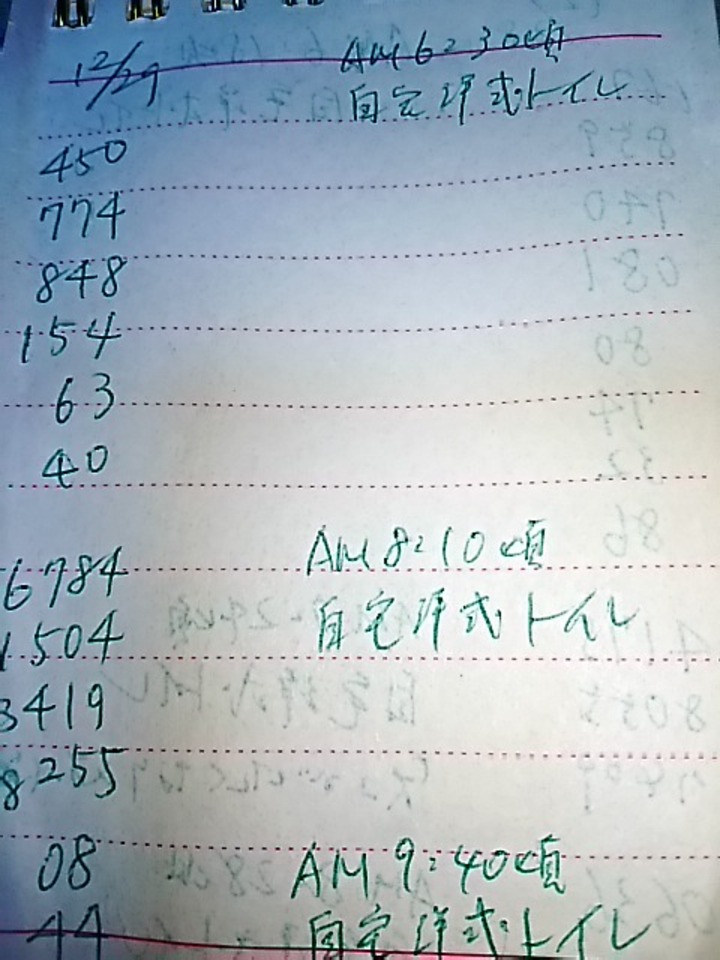 12/29 AM 6:30頃
自宅洋式トイレ
450
774
848
154
63
40
6784 AM 8:10頃
1504 自宅洋式トイレ
3419
8255
08 AM 9:40頃
44 自宅洋式トイレ